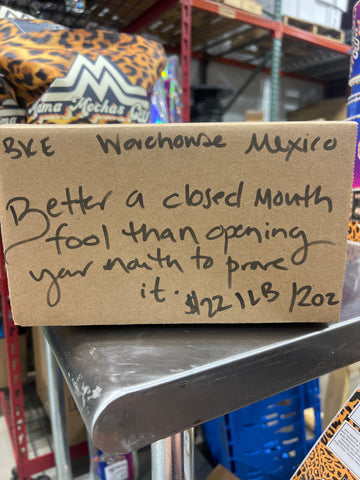 Mama Mochas Co
BKE Warehouse Mexico
Better a closed mouth
fool than opening
your mouth to prove
it. $22 1LB /12oz